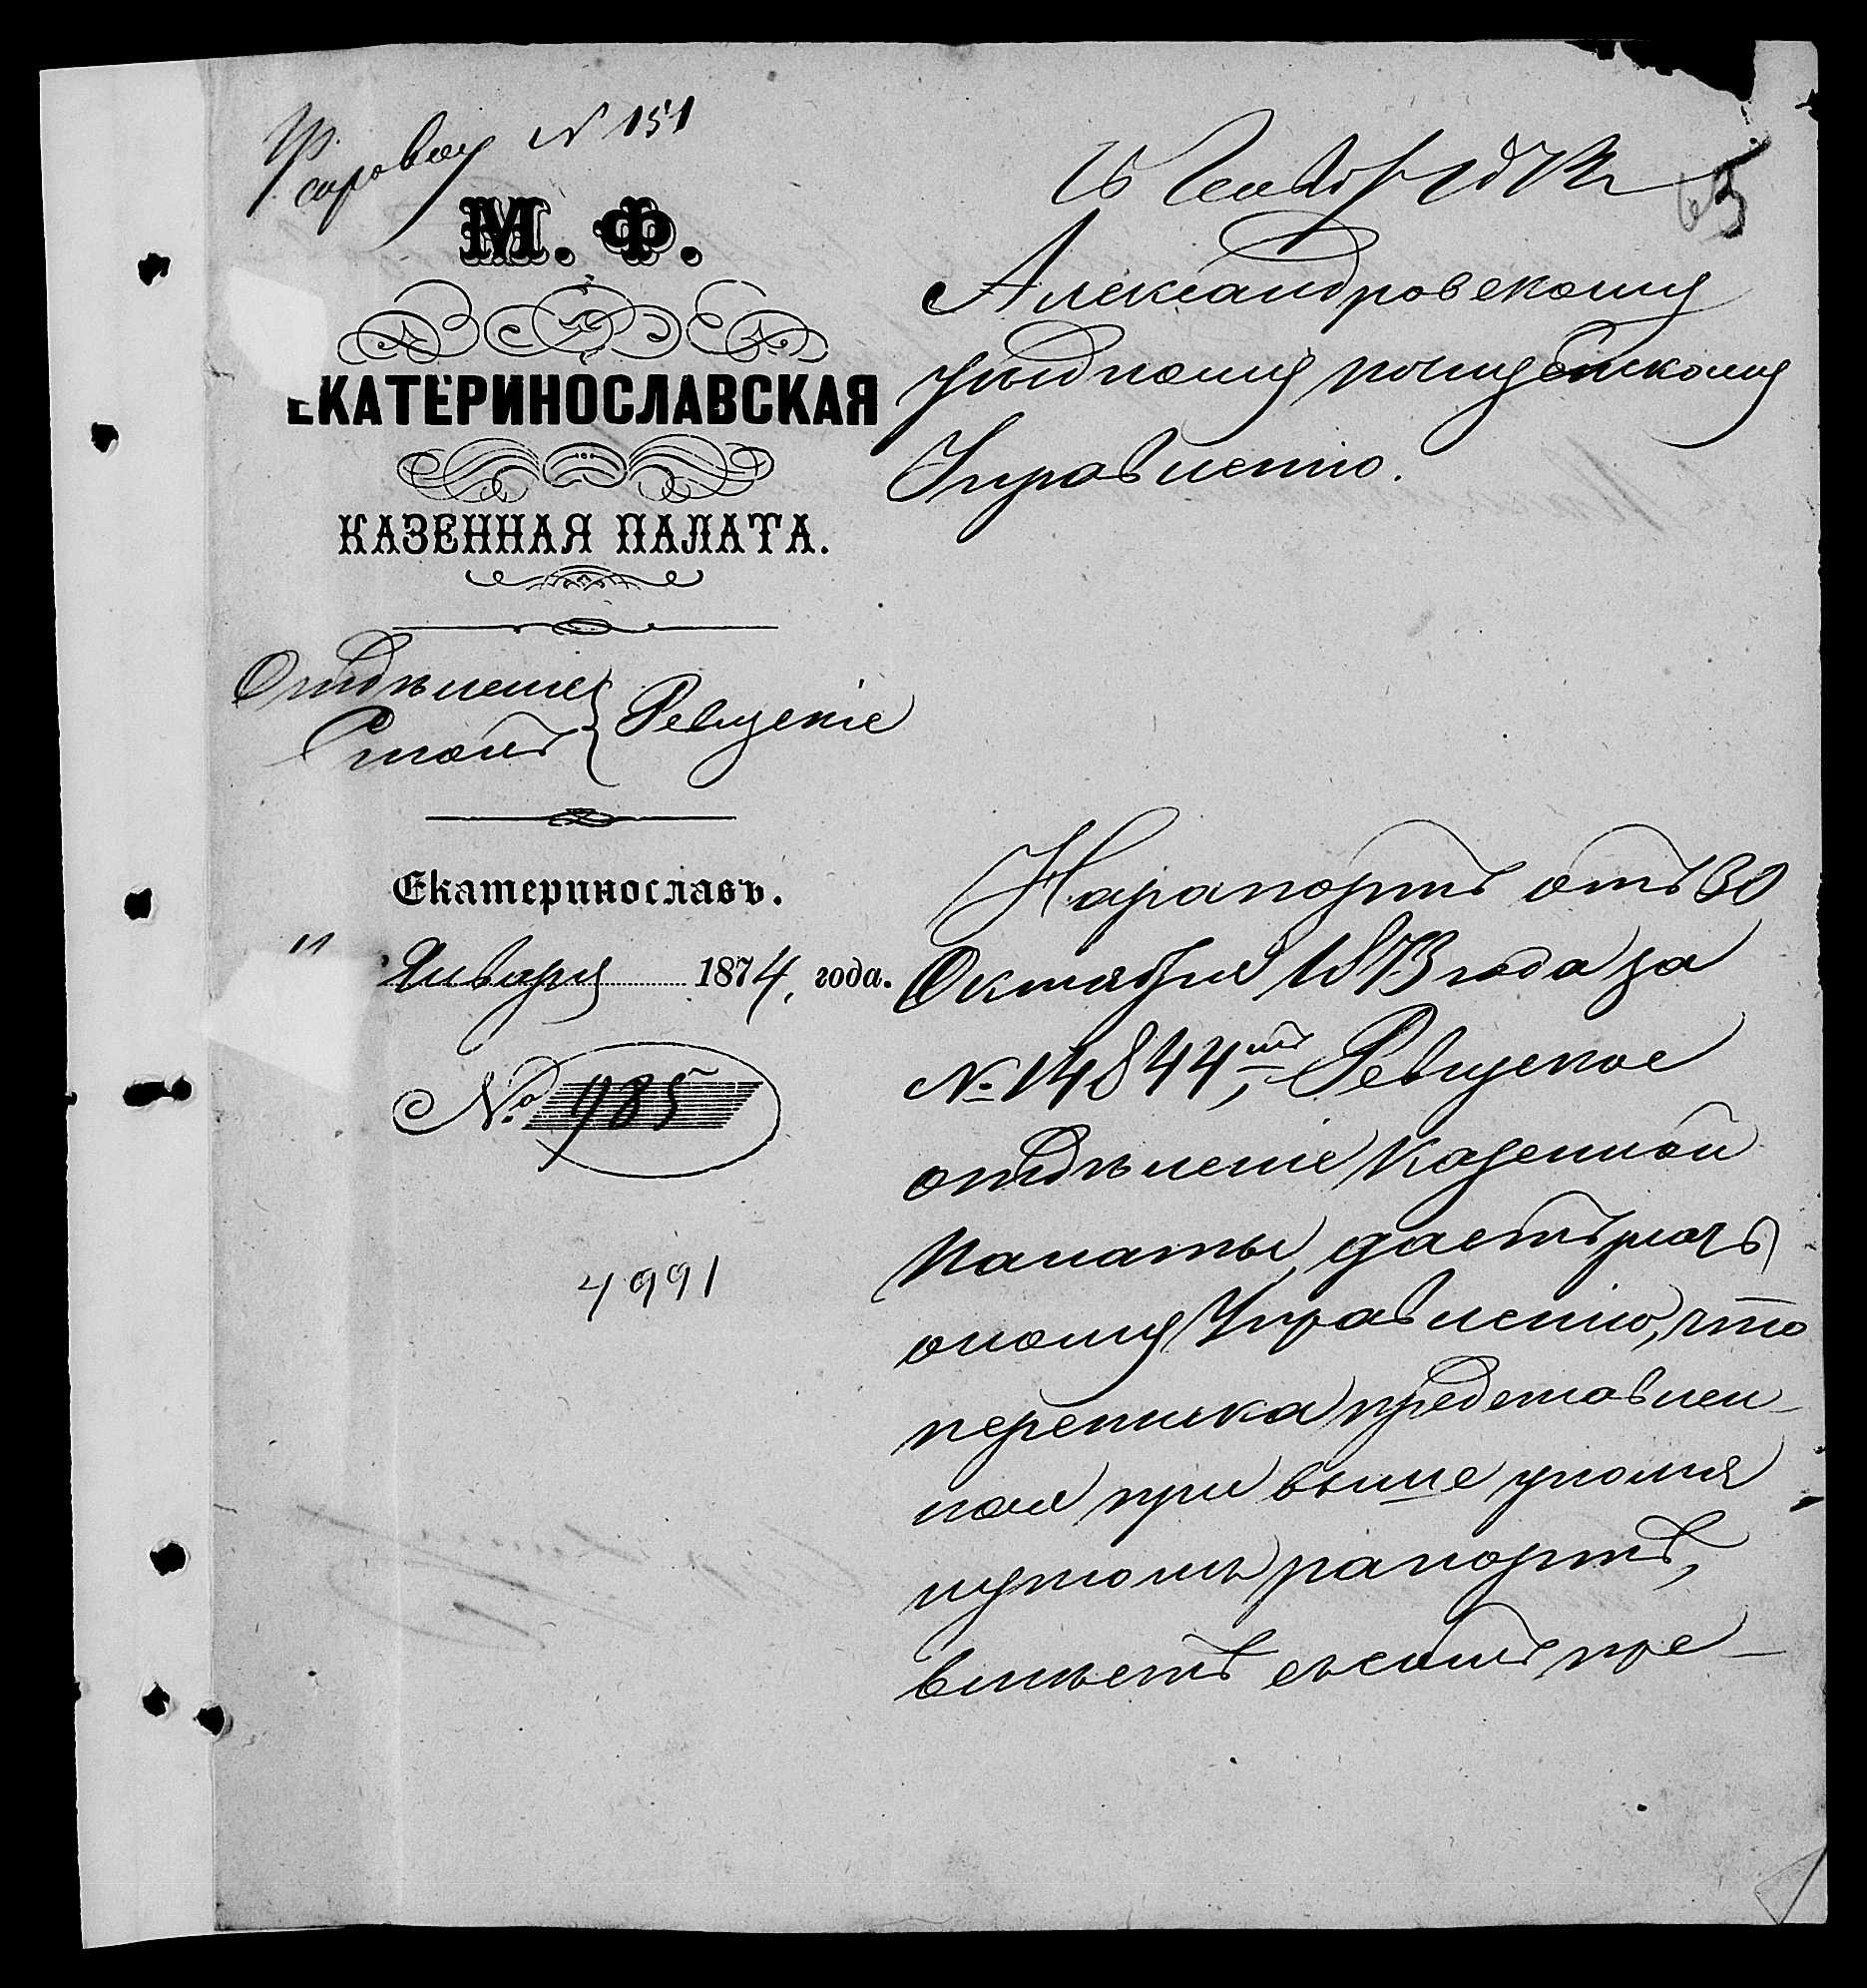 № 151
65
М. Ф.
ЕКАТЕРИНОСЛАВСКАЯ
КАЗЕННАЯ ПАЛАТА.
Отдѣленіе
Столъ
Ревизскіе
Екатеринославъ.
" Января 1874, года.
№ 985
4991
Александровскому
уѣздному полицейскому
Управленію.
На рапортъ отъ 30
Октября 1873 года за
№ 14844, Ревизское
отдѣленіе Казенной
Палаты, даетъ знать
оному Управленію, что
переписка представлен-
ная при выше упомя
нутомъ рапортѣ,
вмѣстѣ съ симъ пре-